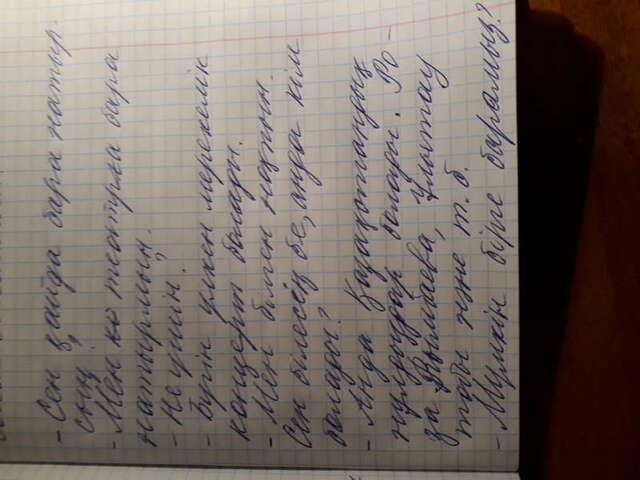 - Сен қайда бара натыр-
сың?
- Мен ко театрға бара
натырмын.
- Не үшін?
- Бүгін үлкен мерекелік
концерт болады.
- Мен білген ноқпын.
Сен білесең бе, анда кім
болады?
- Анда Қазақстандық
нұлдыздар болады. Ро-
за Рымбаева, Ұлытау
тобы және т.б.
- Мүмкін бірге барамыз?